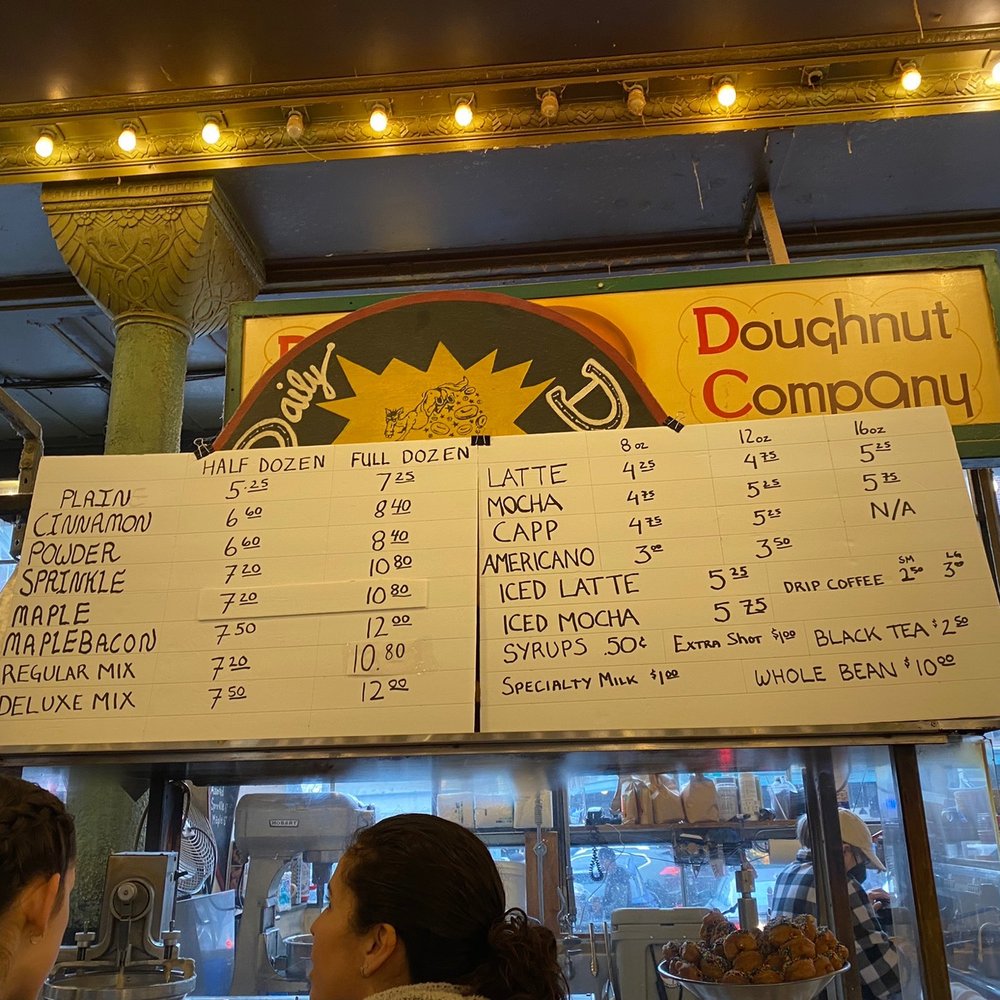 Doughnut
Company
Daily
D
HALF DOZEN FULL DOZEN
PLAIN 5.25 7 25
CINNAMON 6 60 8 40
POWDER 6 60 8 40
SPRINKLE 7 20 10 80
MAPLE 7 20 10 80
MAPLEBACON 7 50 12 00
REGULAR MIX 7 20 10.80
DELUXE MIX 7 50 12 00
8oz 12oz 16oz
LATTE 4 25 4 75 5 25
MOCHA 4 75 5 25 5 75
CAPP 4 75 5 25 N/A
AMERICANO 3 00 3 50
ICED LATTE 5 25
DRIP COFFEE SM 2 50 LG 3 00
ICED MOCHA 5 75
SYRUPS .50¢ EXTRA SHOT $1 00 BLACK TEA $2 50
SPECIALTY MILK $1 00 WHOLE BEAN $10 00
HOBART